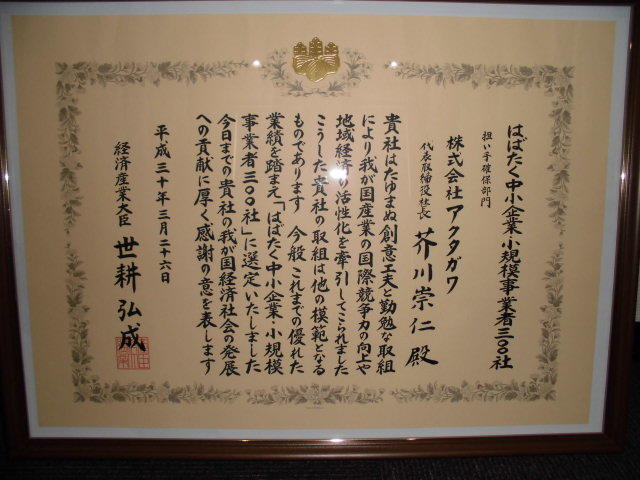 はばたく中小企業・小規模事業者三〇〇社
担い手確保部門
株式会社アクタガワ
代表取締役社長 芥川崇仁 殿
貴社はたゆまぬ創意工夫と勤勉な取組
により我が国産業の国際競争力の向上や
地域経済の活性化を牽引してこられました
こうした貴社の取組は他の模範となる
ものであります 今般 これまでの優れた
業績を踏まえ「はばたく中小企業・小規模
事業者三〇〇社」に選定いたしました
今日までの貴社の我が国経済社会の発展
への貢献に厚く感謝の意を表します
平成三十年三月二十六日
経済産業大臣 世耕弘成